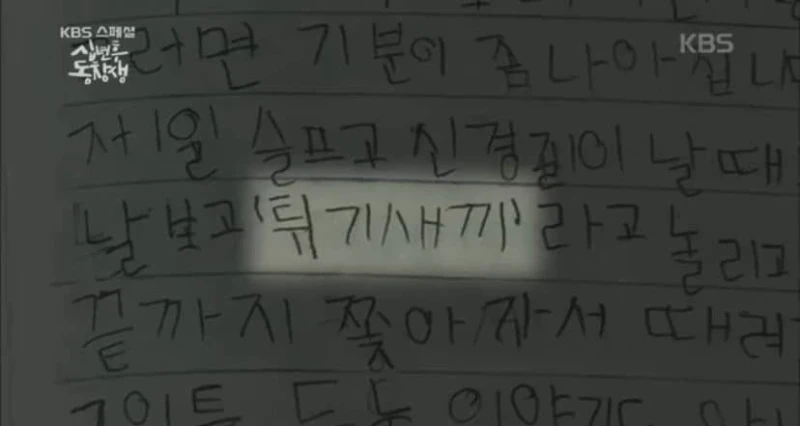 KBS 스페셜
십년후
동창생
KBS
러면 기분이 좀 나아십니
제일 슬프고 신경질이 날 때
날 보고 '튀기새끼' 라고 놀리고
끝까지 쫓아 와서 때려